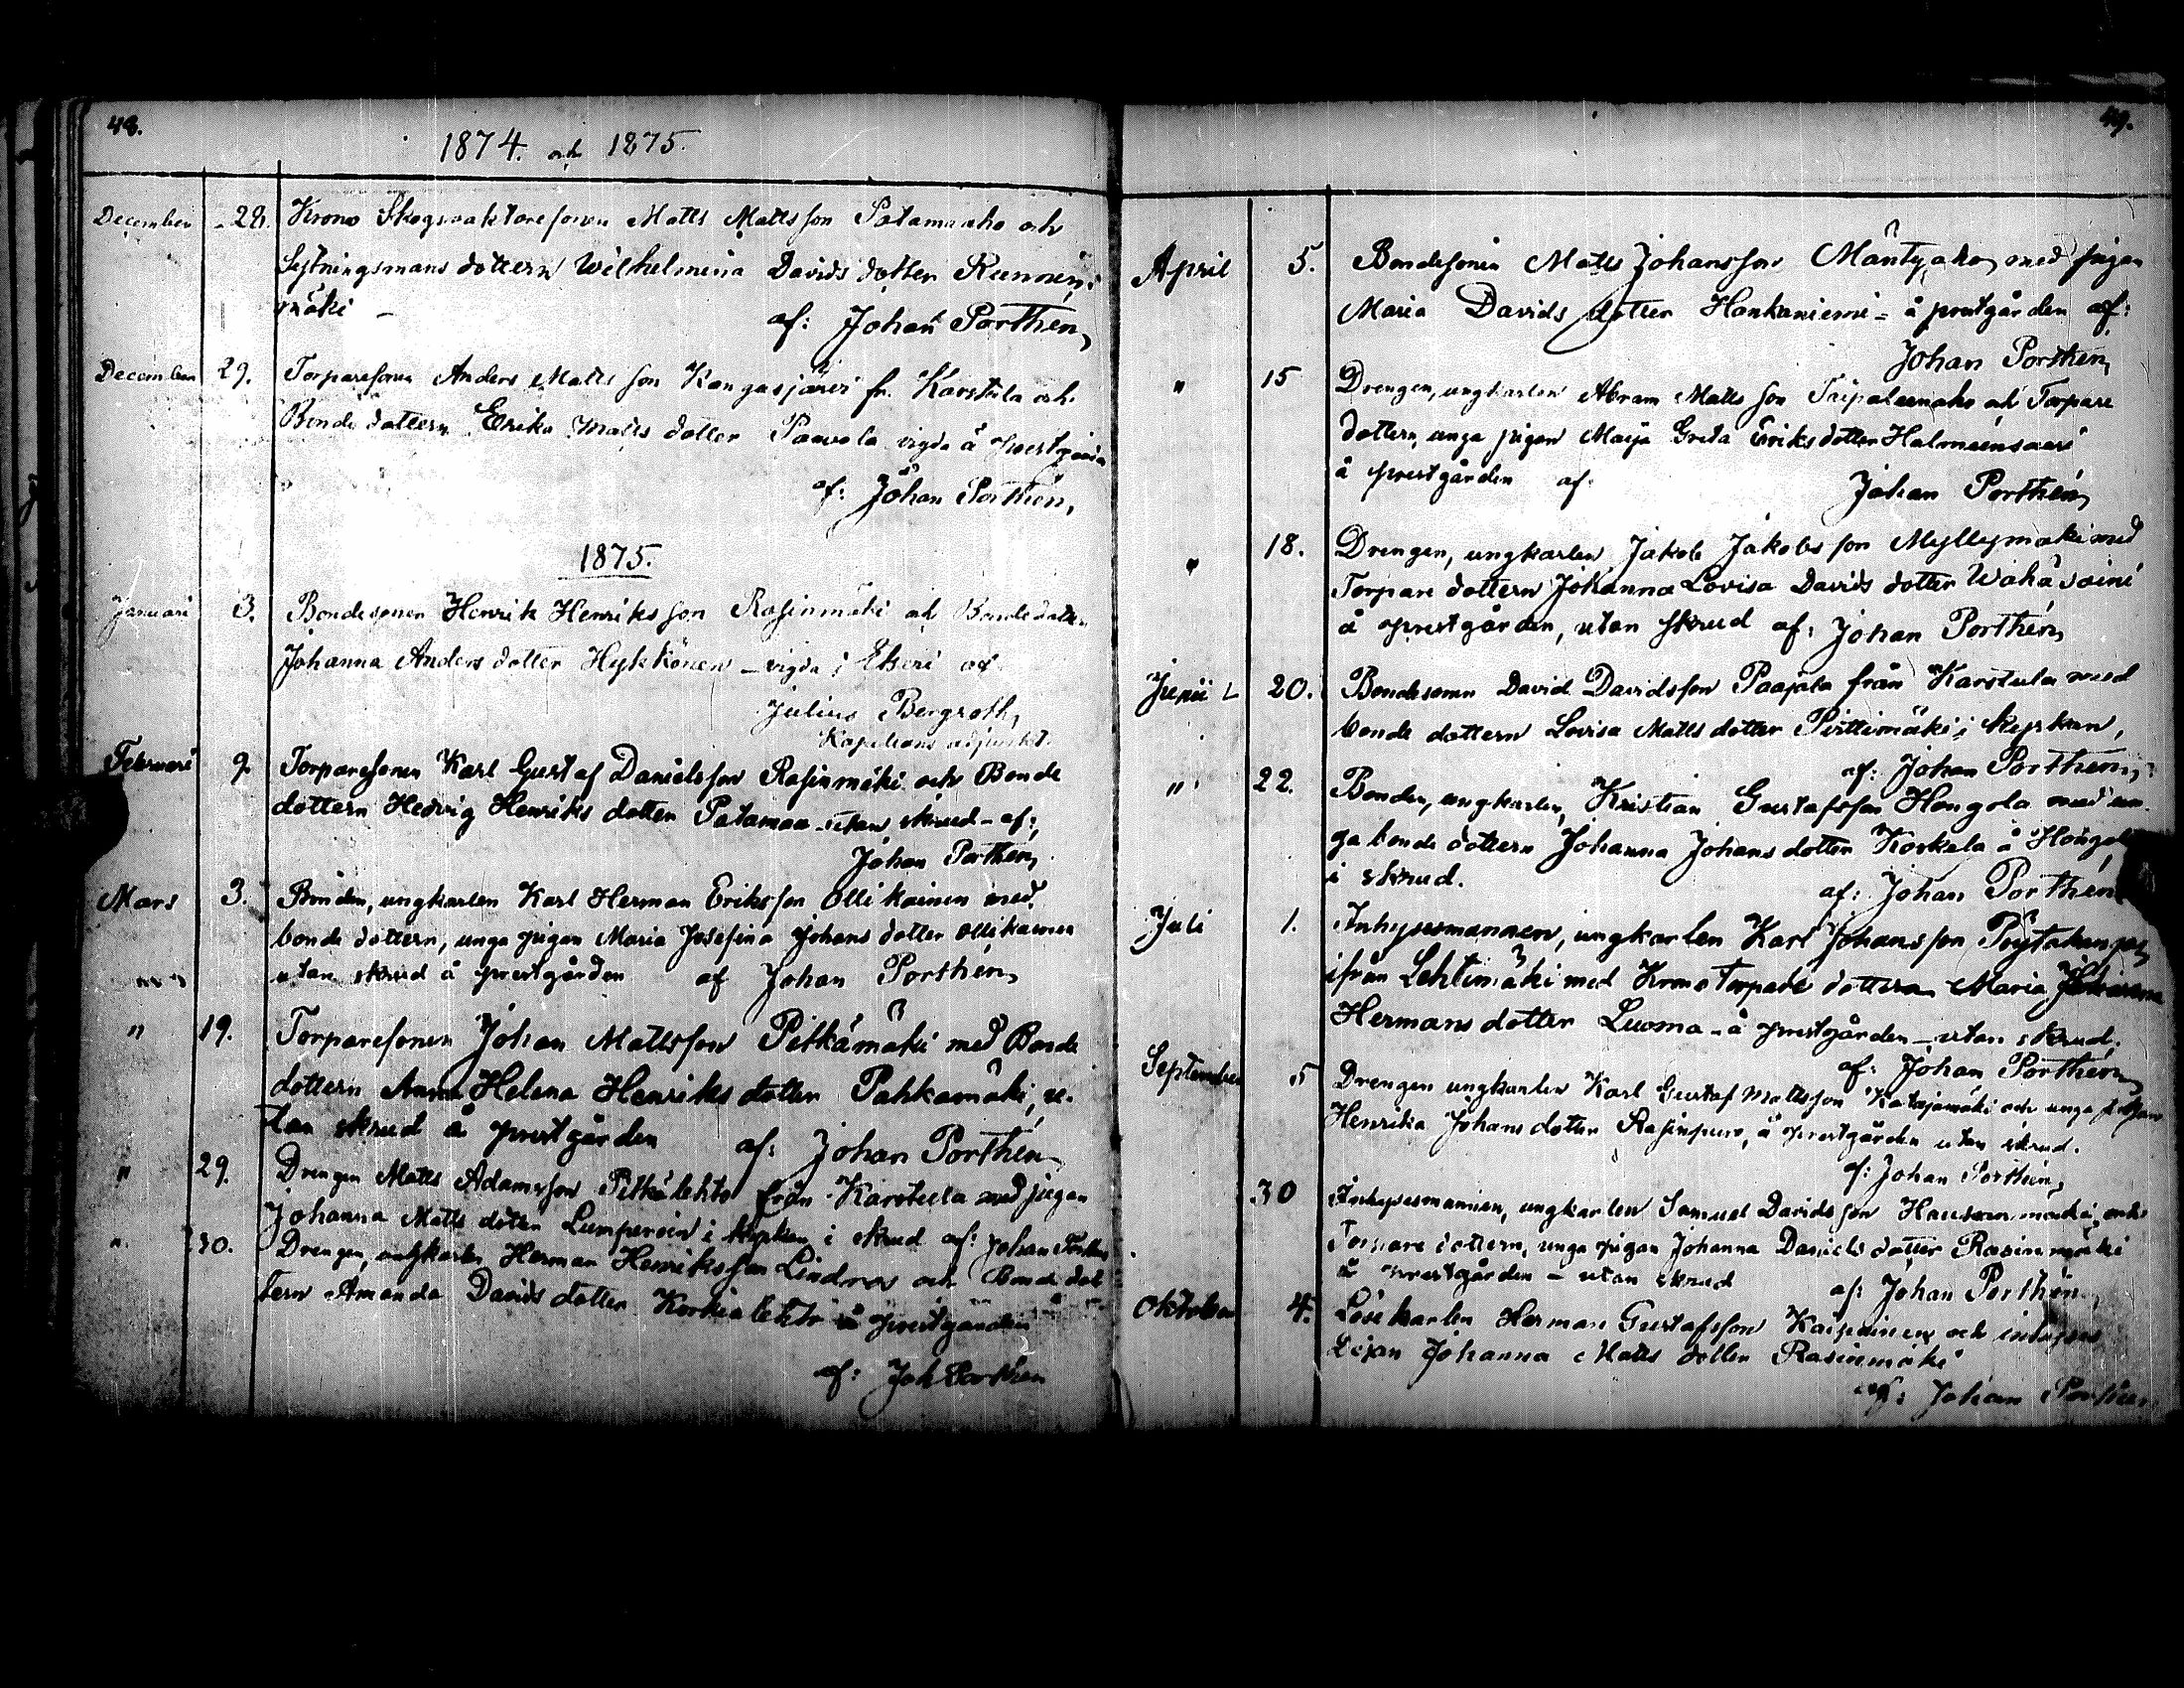 48.
1874. och 1875.
December 28. Krono Skogvaktaresonen Matts Mattsson Patamaaho och
Sytningsmans dottern Wilhelmina Davids dotter
mäki – af: Johan Porthén,
December 29. Torparesonen Anders Matts son Kangasjärvi fr. Karstula och
Bonde dottern Erika Matts dotter Paavola vigda å
af: Johan Porthén,
1875.
Januari 3. Bondesonen Henrik Henriks son Rasinmäki och Bonde
Johanna Anders dotter Hykkönen – vigda i Etseri af
Julius Bergroth,
Kapellans adjunkt.
Februari 9. Torparesonen Karl Gustaf Danielsson Rasinmäki och Bonde
dottern Hedvig Henriks dotter Patamaa – utan skrud – af:
Johan Porthén,
Mars 3. Bonden, ungkarlen Karl Herman Eriksson Ollikainen med
bonde dottern, unga pigan Maria Josefina Johans dotter Ollikainen
utan skrud å prestgården af Johan Porthén,
" 19. Torparesonen Johan Mattsson Pitkämäki med Bonde
dottern Anna Helena Henriks dotter Pahkamäki, u-
tan skrud å prestgården af: Johan Porthén
" 29. Drengen Matts Adamsson Pitkälehto från Karstula med pigan
Johanna Matts doter Lumperoin i kyrkan i skrud af: Johan Porthén
" 30. Drengen, ungkarlen Herman Henriksson Lindroos och bonde dot
tern Amanda Davids dotter Korkialehto å prestgården
af: Joh Porthén
49.
April 5. Bondesonen Matts Johansson Mäntyaho med pigan
Maria Davids dotter Honkaniemi – å prestgården af:
Johan Porthén,
" 15 Drengen, ungkarlen Abram Matts son Taipaleenaho och Torpare
dottern, unga pigan Maija Greta Eriks dotter
å prestgården af. Johan Porthén,
" 18. Drengen, ungkarlen Jakob Jakobs son Myllymäki med
Torpare dottern Johanna Lovisa Davids dotter Wähäsoini
å prestgården, utan skrud af: Johan Porthén,
Junii 20. Bondesonen David Davidsson Paajala från Karstula med
bonde dottern Lovisa Matts dotter Pirttimäki i kyrkan,
af: Johan Porthén,
" 22. Bonden, ungkarlen, Kristian Gustafsson Hongola med un-
ga bonde dottern Johanna Johans dotter Korkela å
i skrud. af: Johan Porthén
Juli 1. Inhysesmannen, ungkarlen Karl Johansson
ifrån Lehtimäki med Krono Torpare dottern Maria
Hermans dotter Luoma – å prestgården – utan skrud.
af: Johan Porthén,
September 5 Drengen ungkarlen Karl Gustaf Mattsson Katajamäki och unga pigan
Henrika Johans dotter Rasinpuro, å prestgården utan skrud.
af: Johan Porthén,
30 Inhysesmannen, ungkarlen Samuel Davids son och
Torpare dottern, unga pigan Johanna Daniels dotter Rasinmäki
å prestgården – utan skrud af: Johan Porthén
Oktober 4. Lösekarlen Herman Gustafsson Kaipainen och inhyses
Johanna Matts dotter Rasinmäki
af: Johan Porthén